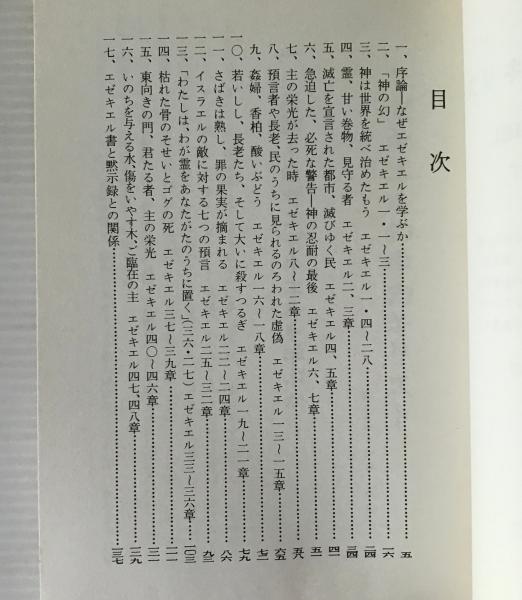 目次
一、序論―なぜエゼキエルを学ぶか……五
二、「神の幻」 エゼキエル一・一～三……一六
三、神は世界を統べ治めたもう エゼキエル一・四～二八……二四
四、霊、甘い巻物、見守る者 エゼキエル二、三章……三四
五、滅亡を宣言された都市、滅びゆく民 エゼキエル四、五章……四一
六、急迫した、必死な警告―神の忍耐の最後 エゼキエル六、七章……五一
七、主の栄光が去った時 エゼキエル八～一二章……五八
八、預言者や長老、民のうちに見られるのろわれた虚偽 エゼキエル一三～一五章……六五
九、姦婦、香柏、酸いぶどう エゼキエル一六～一八章……七二
一〇、若いしし、長老たち、そして大いに殺すつるぎ エゼキエル一九～二一章……七九
一一、さばきは熟し、罪の果実が摘まれる エゼキエル二二～二四章……八六
一二、イスラエルの敵に対する七つの預言 エゼキエル二五～三二章……九三
一三、「わたしは、わが霊をあなたがたのうちに置く」(三六・二七) エゼキエル三三～三六章……一〇三
一四、枯れた骨のそせいとゴグの死 エゼキエル三七～三九章……一一一
一五、東向きの門、君たる者、主の栄光 エゼキエル四〇～四六章……
一六、いのちを与える水、傷をいやす木、ご臨在の主 エゼキエル四七、四八章……一二九
一七、エゼキエル書と黙示録との関係……一三七